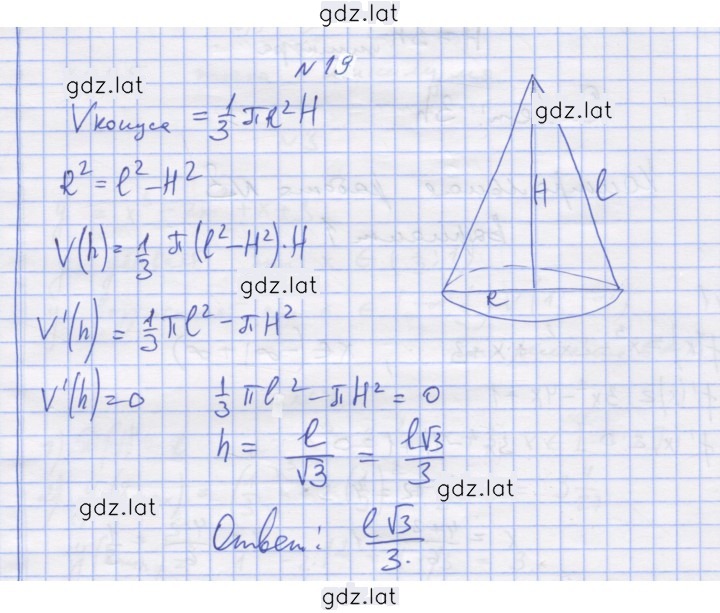 gdz.lat
N 19
gdz.lat
Vконуса = 1/3 πR²H
gdz.lat
R² = l² - H²
H
l
V(h) = 1/3 π(l² - H²)·H
gdz.lat
R
V'(h) = 1/3 πl² - πH²
V'(h) = 0 1/3 πl² - πH² = 0
h = l/√3 = l√3/3
gdz.lat
gdz.lat
Ответ: l√3/3.
gdz.lat